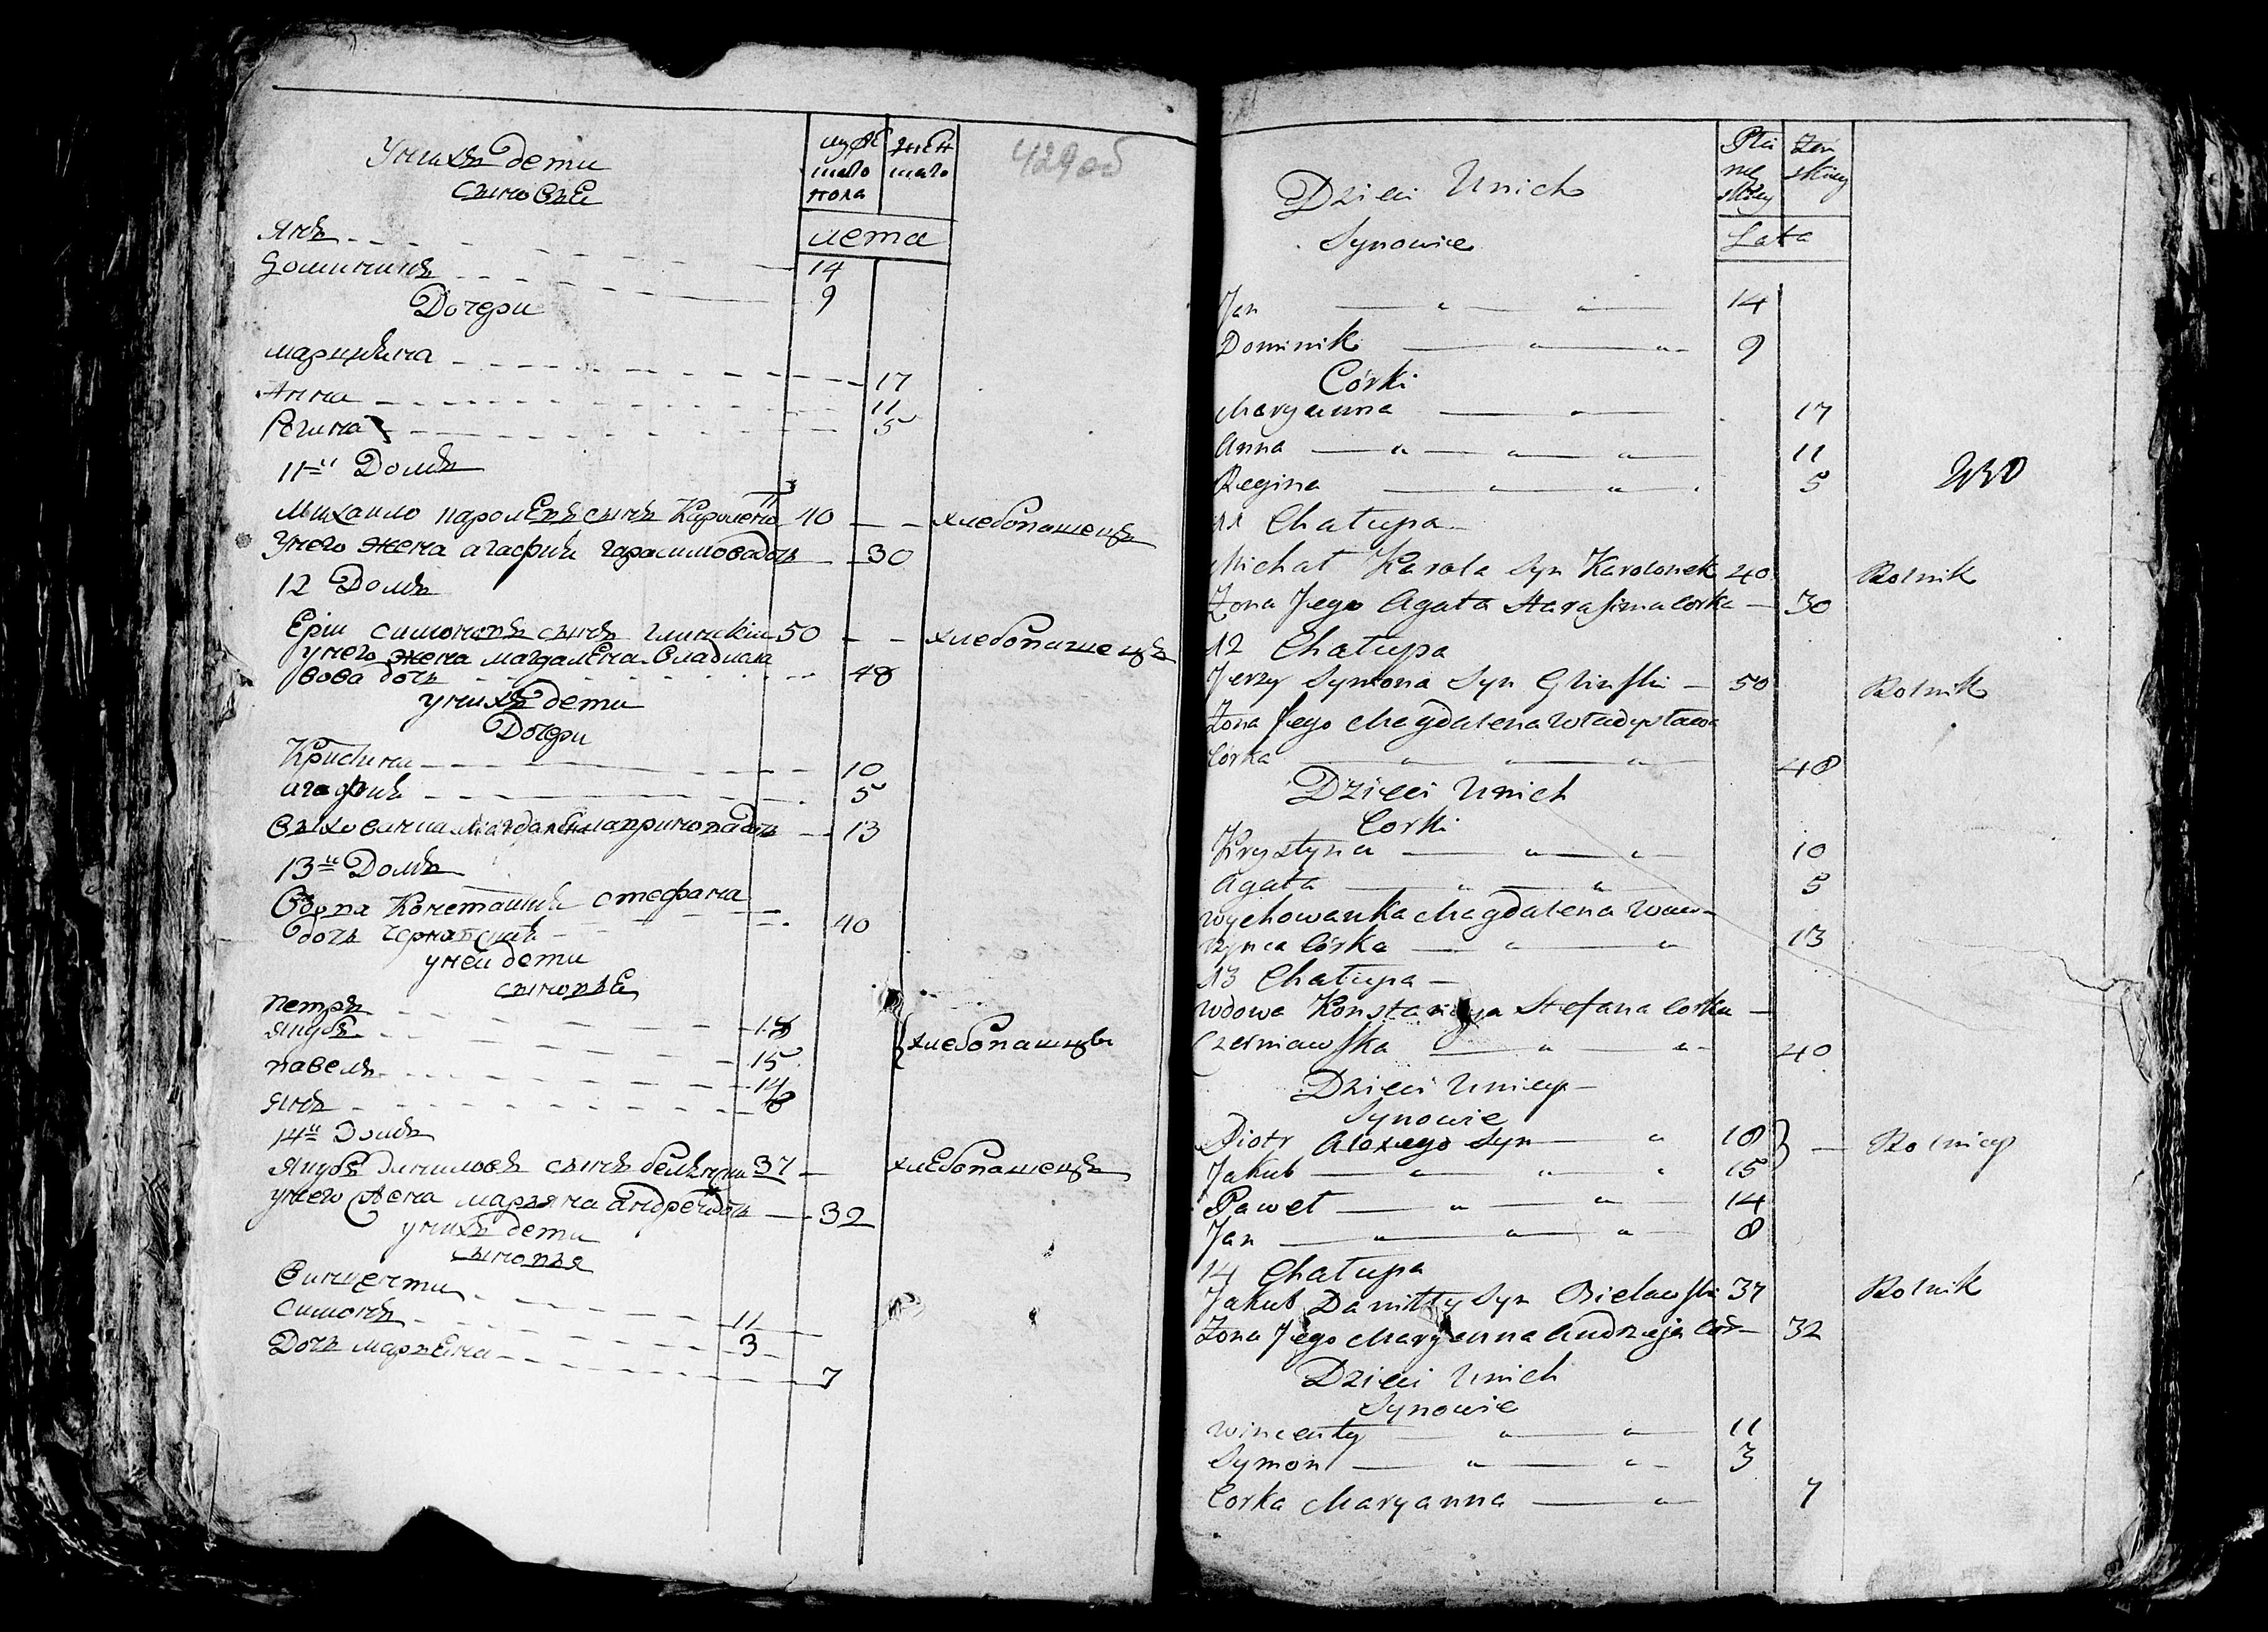 Унихъ дети
сыновъе
мужескаго пола
женскаго
429об
лета
Янъ 14
Доминикъ 9
Дочери
Марцыяна 17
Анна 11
Регина 5
11й Домъ
Михайло каролевъ сынъ 40 хлебопашецъ
Унего жена агафия гарасимова дочь 30
12 Домъ
Ерiи симоновъ сынъ глинскiи 50 хлебопашецъ
унего жена магдалена владисла
вова дочь 48
унихъ дети
Дочери
Кристина 10
агафия 5
13
13й Домъ
Вдова Констанцiя стефана
дочь чернявская 40
унеи дети
сыновъе
петръ 18
якубъ 15
хлебопашцы
павелъ 14
янъ 8
14й Домъ
Якубъ даниловъ сынъ 37 хлебопашецъ
унего жена маръяна андрея дочь 32
унихъ дети
сыновья
Винценти 11
Симонъ 3
Дочь маръяна 7
Płci męskiey
Żeńskiey
Dzieci Unich
Synowie
Lata
Jan 14
Dominik 9
Córki
Maryanna 17
Anna 11
Regina 5
430
11 Chałupa
Michał Karola Syn Karolonek 40 Rolnik
Żona Jego Agata Harasima Corka 30
12 Chałupa
Jerzy Symona Syn Glinski 50 Rolnik
Żona Jego Magdalena Władysława
Córka 48
Dzieci Unich
Corki
Krystyna 10
Agata 5
Wychowanka Magdalena Waw-
rzynca Córka 13
13 Chałupa
Wdowa Konstancyja Stefana Corka
Czerniawska 40
Dzieci Uniey
Synowie
Piotr Alexego Syn 18 Rolnicy
Jakub 15
Paweł 14
Jan 8
14 Chałupa
Jakub Daniłły Syn Bielawski 37 Rolnik
Żona Jego Maryanna Andrzeja Cór 32
Dzieci Unich
Synowie
Wincenty 11
Symon 3
Corka Maryanna 7